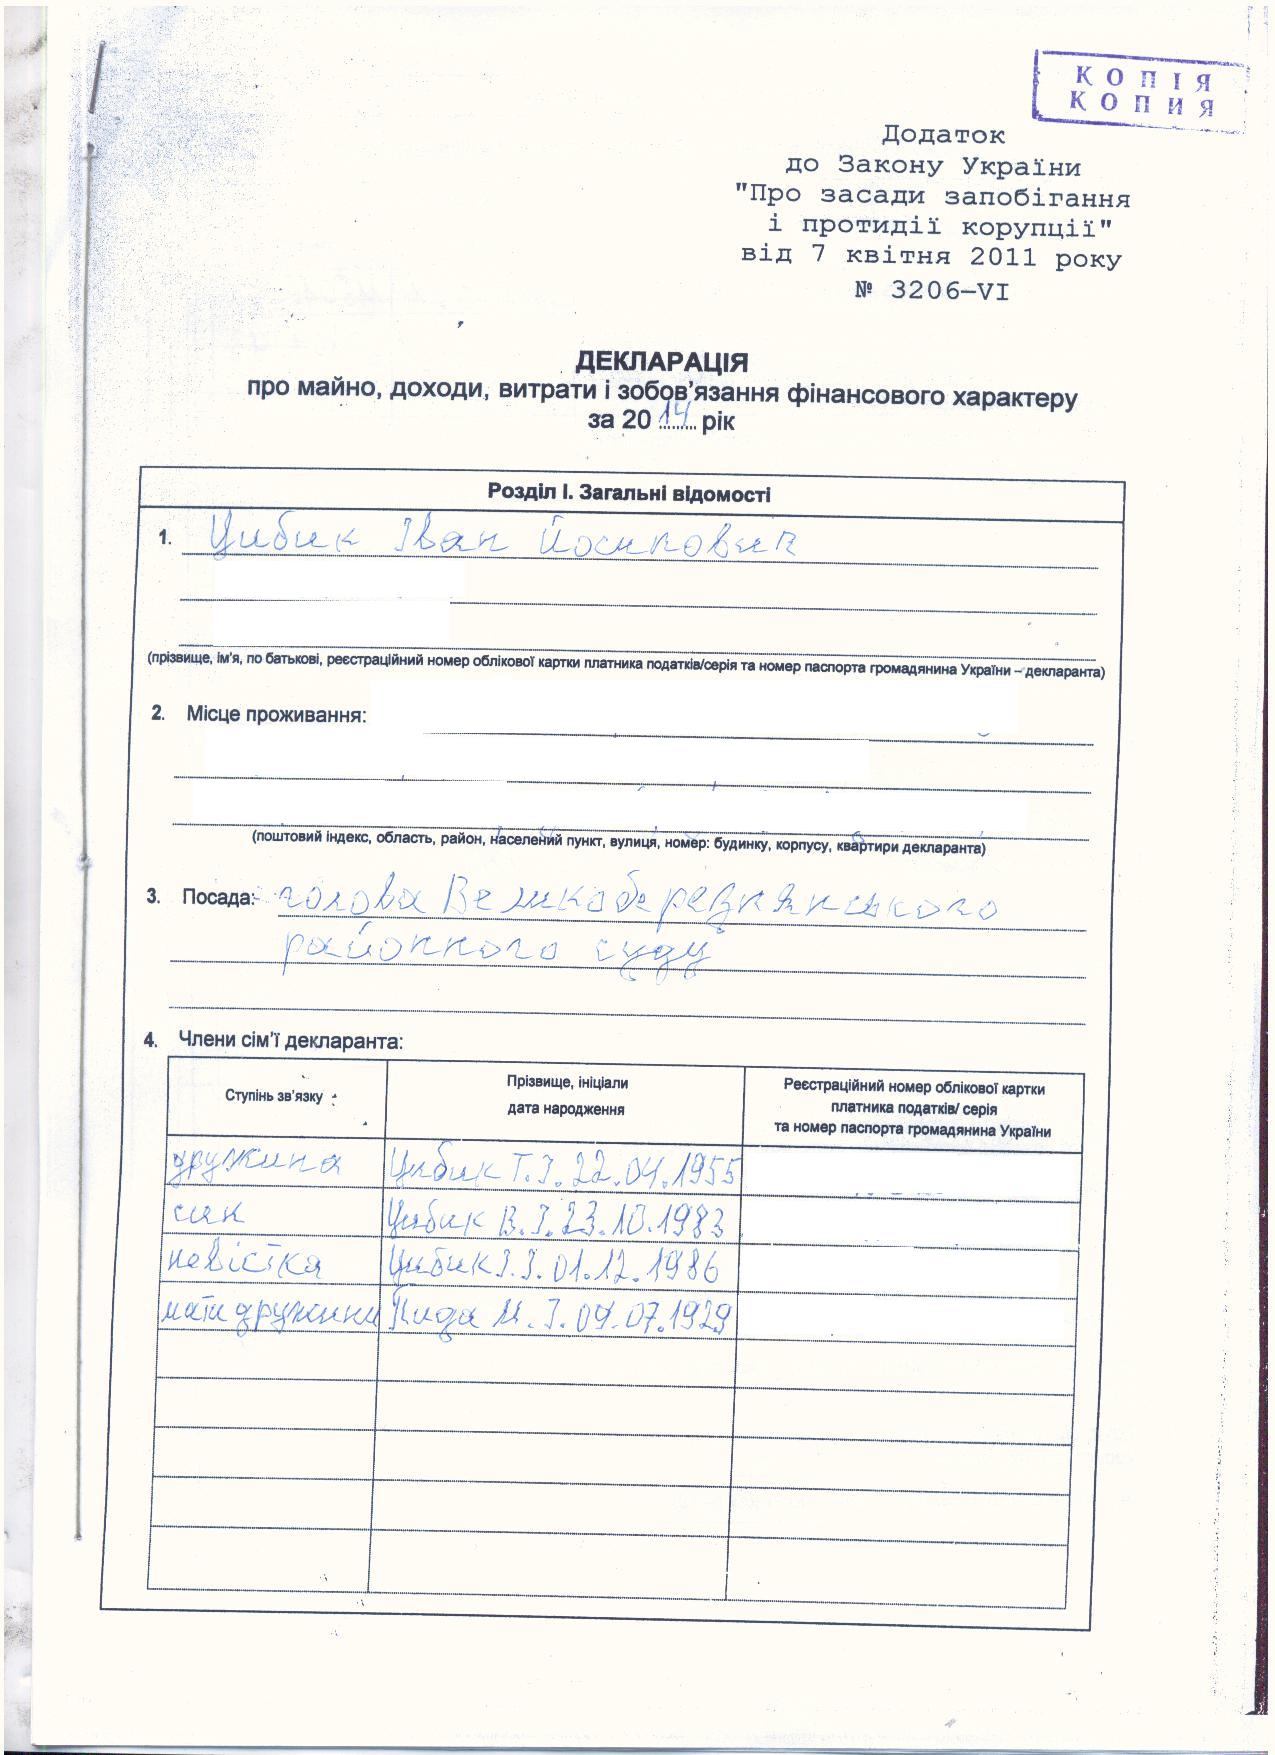 КОПІЯ
КОПИЯ
Додаток
до Закону України
"Про засади запобігання
і протидії корупції"
від 7 квітня 2011 року
№ 3206–VI
ДЕКЛАРАЦІЯ
про майно, доходи, витрати і зобов’язання фінансового характеру
за 2014 рік
Розділ І. Загальні відомості
1. Цибик Іван Йосипович
(прізвище, ім’я, по батькові, реєстраційний номер облікової картки платника податків/серія та номер паспорта громадянина України – декларанта)
2. Місце проживання:
(поштовий індекс, область, район, населений пункт, вулиця, номер: будинку, корпусу, квартири декларанта)
3. Посада: голова Великоберезнянського
районного суду
4. Члени сім’ї декларанта:
Ступінь зв’язку
Прізвище, ініціали
дата народження
Реєстраційний номер облікової картки
платника податків/ серія
та номер паспорта громадянина України
дружина Цибик Т.І. 22.04.1955
син Цибик В.І. 23.10.1983
невістка Цибик І.І. 01.12.1986
мати дружини М.І. 09.07.1929